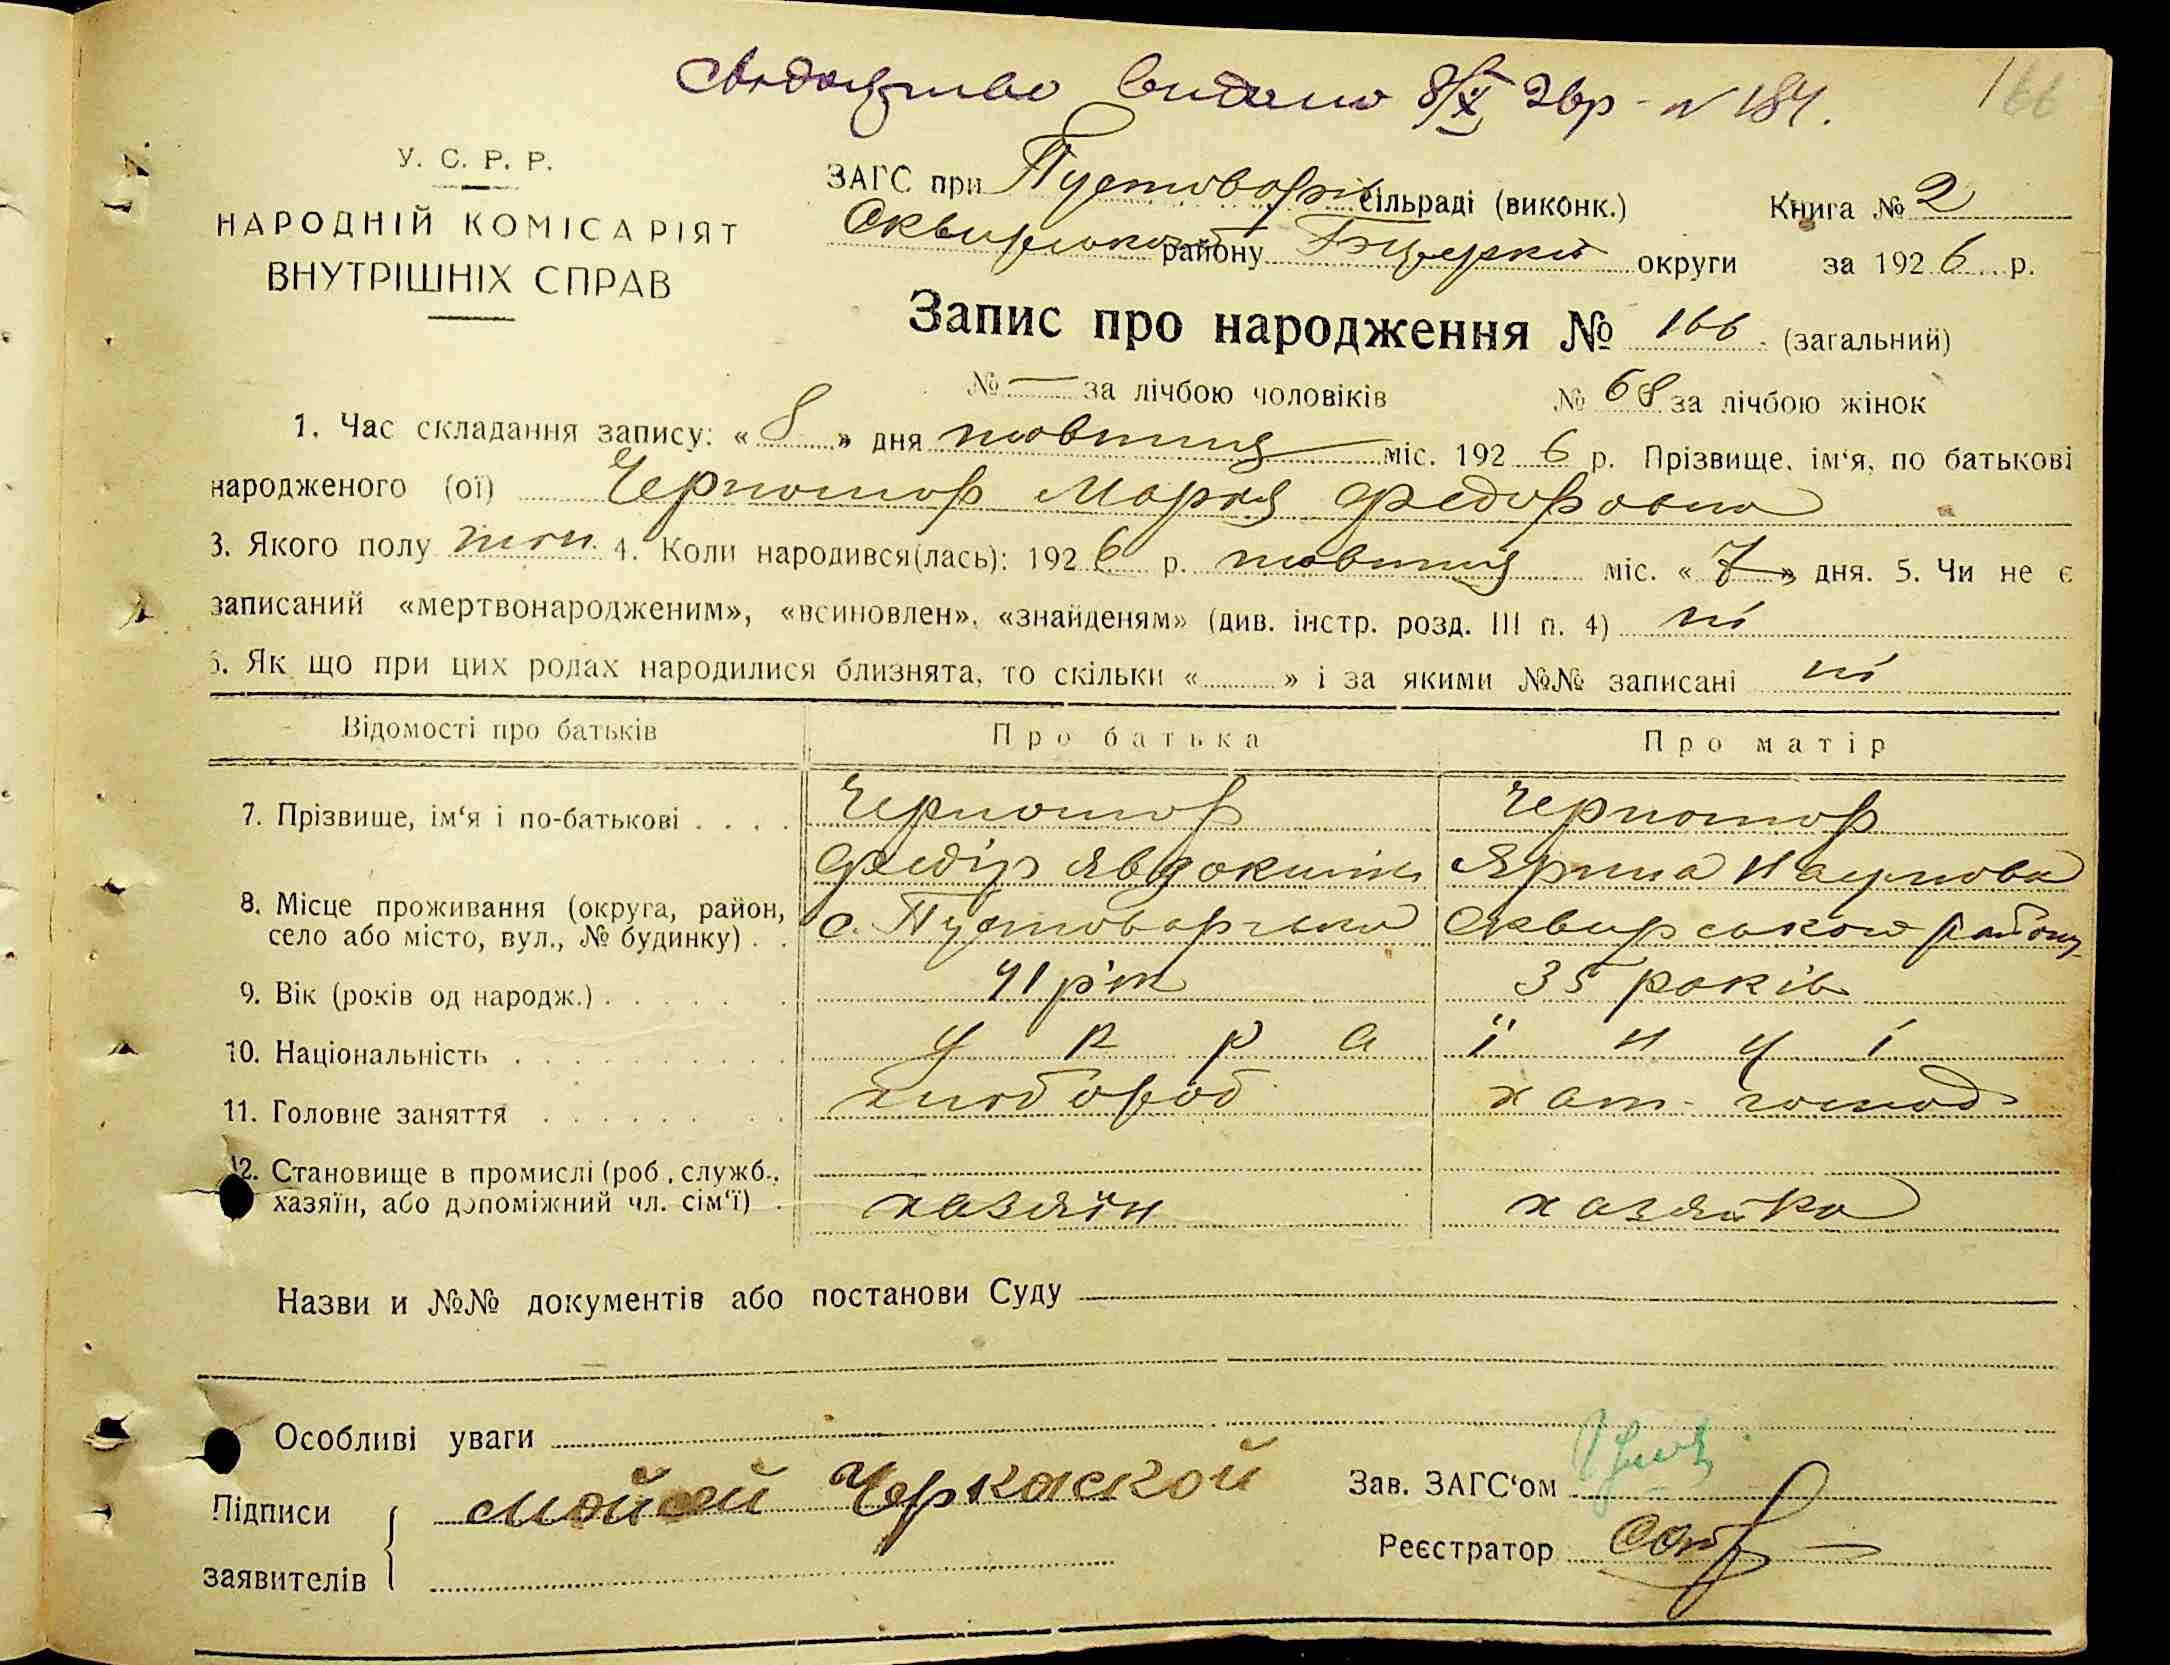 Свідоцтво видано 8/X 26р - N 184.
166
У. С. Р. Р.
НАРОДНІЙ КОМІСАРІЯТ
ВНУТРІШНІХ СПРАВ
ЗАГС при Пустоварів сільраді (виконк.) Книга № 2
Сквирського району Б Церків округи за 1926 р.
Запис про народження № 166 (загальний)
№ — за лічбою чоловіків № 68 за лічбою жінок
1. Час складання запису: « 8 » дня жовтня міс. 1926 р. Прізвище, ім‘я, по батькові
народженого (ої) Черномор Марія Федоровна
3. Якого полу жін. 4. Коли народився(лась): 1926 р. жовтня міс. « 7 » дня. 5. Чи не є
записаний «мертвонародженим», «всиновлен», «знайденям» (див. інстр. розд. III п. 4) ні
6. Як що при цих родах народилися близнята, то скільки « » і за якими №№ записані ні
Відомості про батьків Про батька Про матір
7. Прізвище, ім‘я і по-батькові . . . . Черномор Черномор
Федір Явдокимів Ярина Наумова
8. Місце проживання (округа, район, село або місто, вул., № будинку) . . с. Пустоварівка Сквирського району
9. Вік (років од народж.) . . . . . 41 рік 35 років
10. Національність . . . . . . . . . . у к р а ї н ц і
11. Головне заняття . . . . . . . . хлібороб хат- господ
12. Становище в промислі (роб., служб., хазяїн, або допоміжний чл. сім‘ї) . хазяїн хазяйка
Назви и №№ документів або постанови Суду
Особливі уваги
Підписи Мойсей Черкаской Зав. ЗАГС‘ом
заявителів Реєстратор